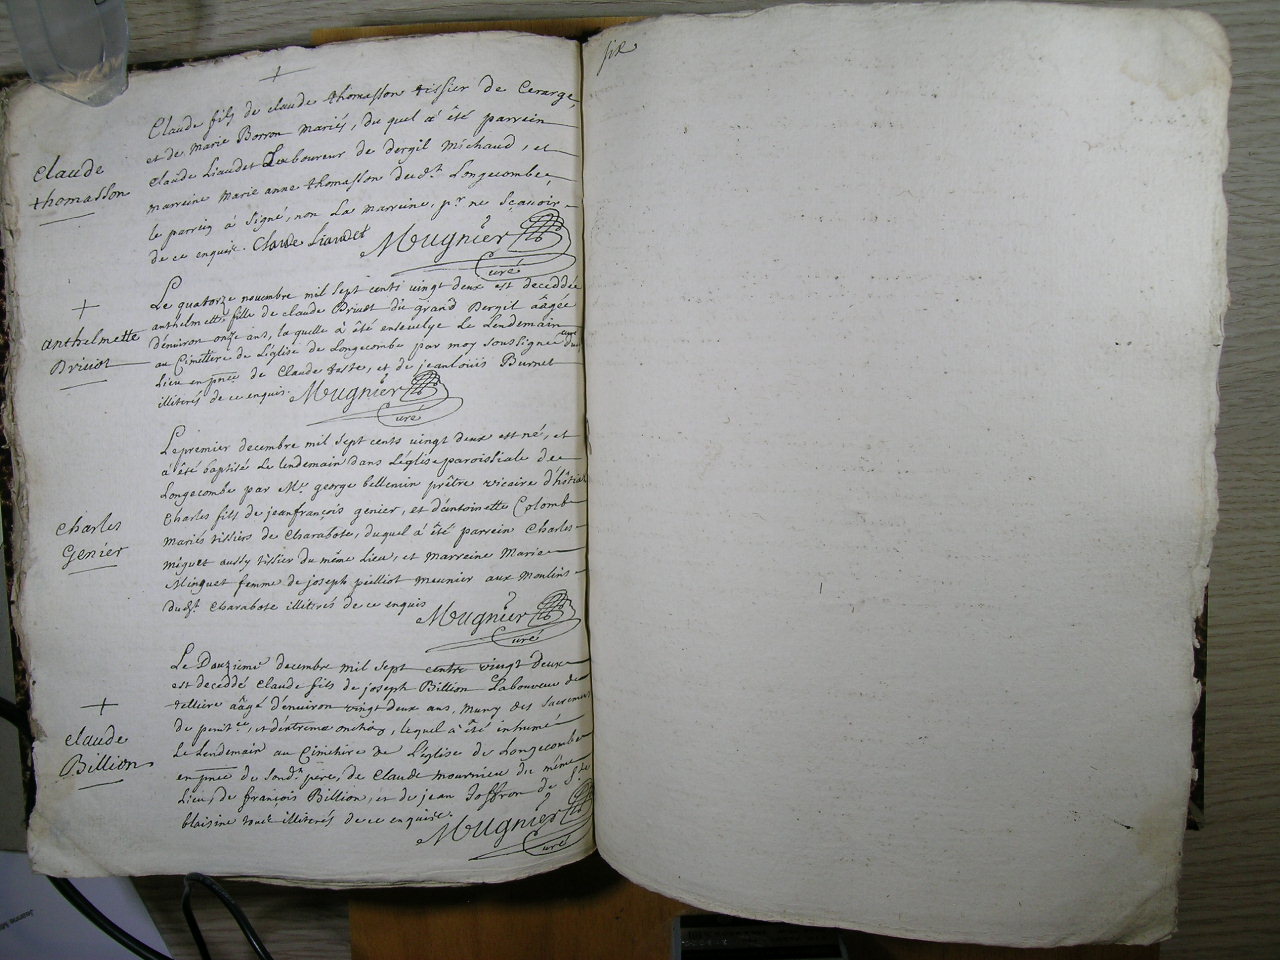 Claude fils de claude thomasson tissier de Cerarge,
et de marie Borron mariés, du quel a été parrein
claude Liaudet Laboureur de dergil michaud, et
marreine marie anne thomasson dud.t Longecombe,
le parrein à signé, non La marreine, p.r ne sçavoir
de ce enquise. Claude Liaudet Mugnier
Curé
claude
thomasson
Le quatorze novembre mil sept cents vingt deux est deceddée
anthelmette fille de claude Driuot du grand Dergil aâgée
d'environ onze ans, la quelle à été ensevelye Le Lendemain
au Cimettere de L'église de Longecombe par moy soussigné curé du
Lieu en pnce de Claude, et de jean Louis Burnet
illiterés de ce enquis. Mugnier
curé
anthelmette
Driuot
Le premier decembre mil sept cents vingt deux est né, et
a été baptisé Le lendemain dans L'église paroissiale de
Longecombe par M.re george bellemin prêtre vicaire d'hôtial
Charles fils de jean françois genier, et d'antoinette Colomb
mariés tissiers de Charabote, duquel à été parrein Charles
miguet aussy tissier du même Lieu, et marreine Marie
Minguet femme de joseph peilliot meunier aux Moulins
dud.t Charabote illiterés de ce enquis Mugnier
Curé
Charles
Genier
Le Douzieme decembre mil sept cents vingt deux
est deceddé Claude fils de joseph Billion Laboureur de
telliere aâgé d'environ vingt deux ans, muny des sacremens
de penit.ce, et d'extreme onction, lequel à été inhumé
Le Lendemain au Cimettere de L'église de Longecombe
en pnce de sond.t pere, de Claude mournieu du même
Lieu, de françois Billion, et de jean Joffron de S.te
blaisine tous illiterés de ce enquis. Mugnier
Curé
claude
Billion
six